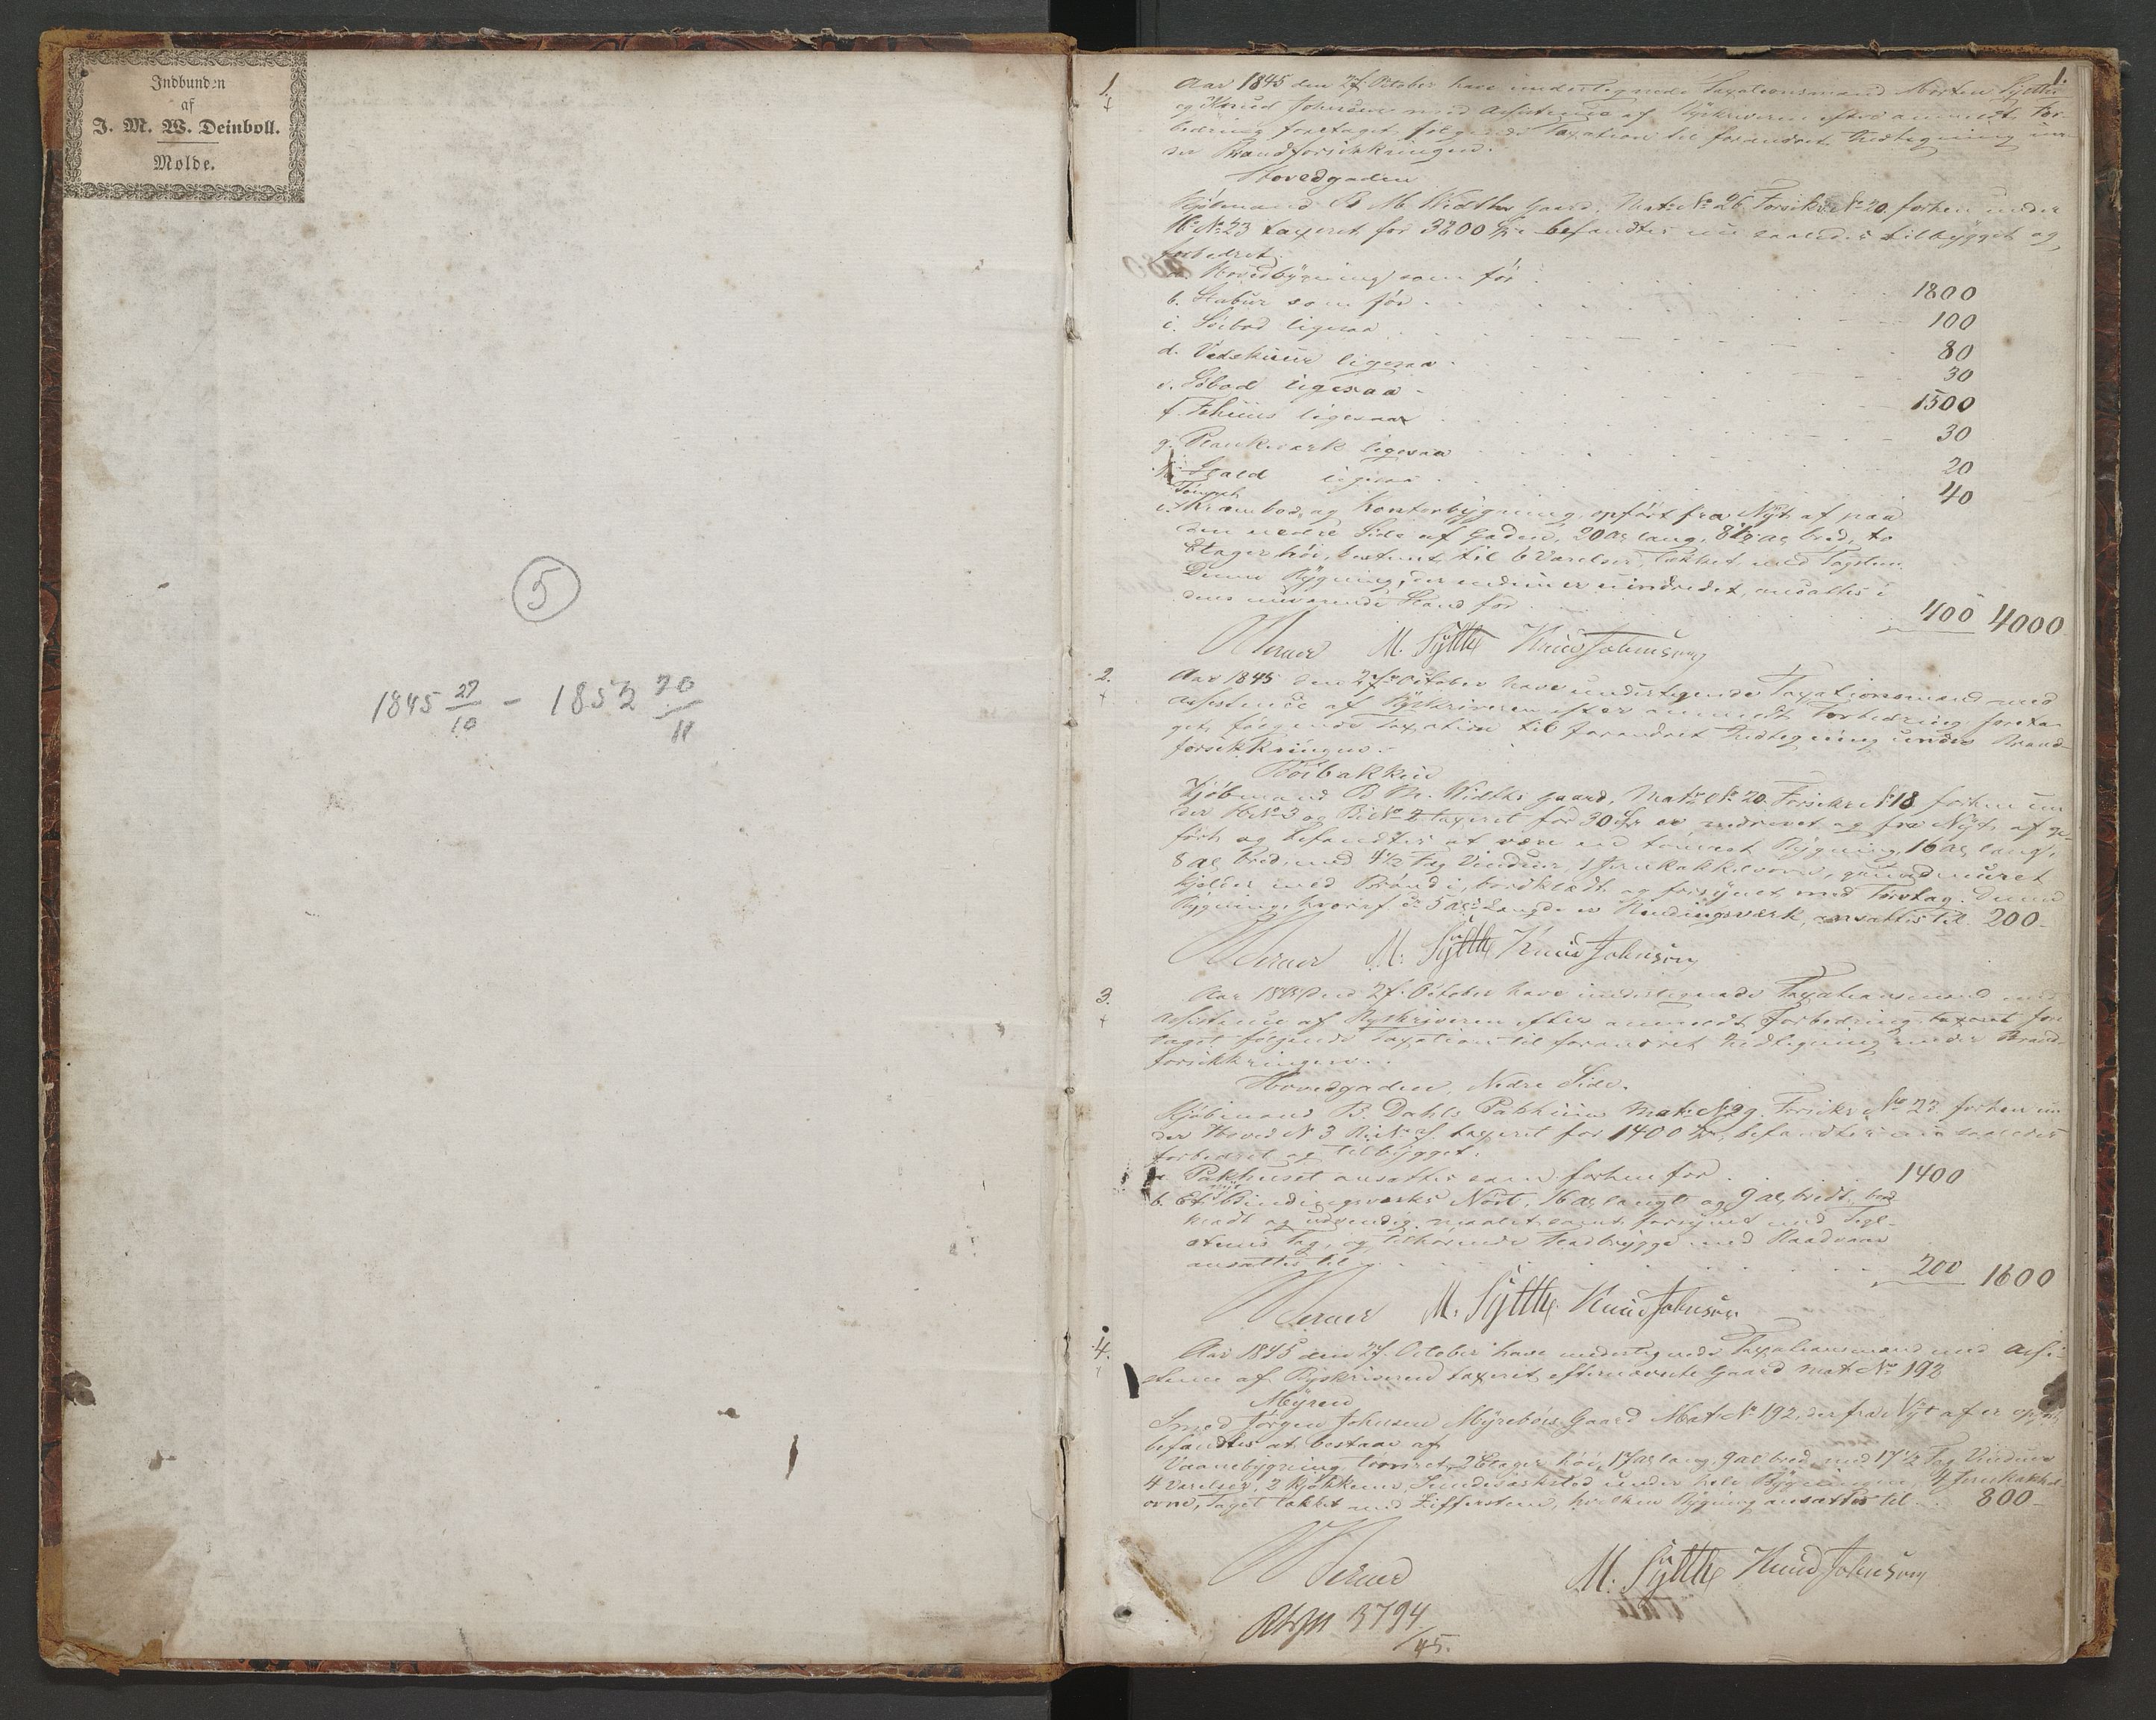 Indbunden
af
J. M. W. Deinboll.
Molde.
5
1845 27/10 - 1852 20/11
1.
1.
Aar 1845 den 27 October have undertegnede Taxationsmænd Morten Sylthe
og Knud Johnsen med Assistence af Byskriveren efter anmeldt For-
bedring foretaget følgende Taxation til forandret Ansættelse un-
der Brandforsikkringen.
Hovedgaden
Kjöbmand B M. Widths Gaard, Mat: No 26. Forsikr. No 20. forhen under
H. No 23 taxeret for 3600 Spd befandtes nu saaledes tilbygget og
forbedret.
a. Hovedbygning som för 1800
b. Stabur som för 100
c. Söebod ligesaa 80
d. Vedskuur ligesaa 30
e. Söbod ligesaa 1500
f. Fehuus ligesaa 30
g. Plankeværk ligesaa 20
h. ligesaa 40
i. Tömret Krambod og Kontorbygning, opfört fra Nyt af paa
den nedre Side af Gaden, 20 al. lang, 8 1/2 al. bred, to
Etager höi, bestemt til 6 Værelser, lakket med Tagsteen
Denne Bygning, der endnu er uindredet, ansattes i
dens nuværende Stand for 400 4000
Werner M. Sylthe Knud Johnsen
2.
Aar 1845 den 27 October have undertegnede Taxationsmænd med
Assistence af Byskriveren efter anmeldt Forbedring foreta-
get følgende Taxation til forandret under Brand-
forsikkringen.
Kjöbmand B M. Widths Gaard, Matr. No 20. Forsikr. No 18 forhen un-
der H. No 3 og Bi No 2 taxeret for 30 Spd er nedrevet og fra Nyt af op-
fört og befandtes at være en tömret Bygning, 16 al. lang,
8 al. bred, med 4 1/2 Fag Vinduer, 1 Jernkakkelovn, grundmuret
Kjelder med Brönd i, bordklædt og forsynet med Torvtag. Denne
Bygning, hvoraf 5 al. i Længde er Bindingsværk, ansattes til 200
Werner M. Sylthe Knud Johnsen
3.
Aar 1845 den 27. October have undertegnede Taxationsmænd med
Assistence af Byskriveren efter anmeldt Forbedring taxeret fore-
taget følgende Taxation til forandret under Brand-
forsikkringen.
Hovedgaden, Nedre Side.
Kjöbmand B. Dahls Pakhuus Matr. No 29. Forsikr. No 23 forhen un-
der Hoved No 3 Bi No taxeret for 1400 Spd, befandtes nu saaledes
forbedret og tilbygget.
a. Pakhuset ansattes som forhen for 1400
b. Et nyt Bindingsværks Nöst, 16 al. langt og 9 al. bredt, bord-
klædt og udvendig malet samt forsynet med Tegl-
steens Tag, og tilhørende Brygge med
ansattes til 200 1600
Werner M. Sylthe Knud Johnsen
4.
Aar 1845 den 27. October have undertegnede Taxationsmænd med Assi-
stence af Byskriveren taxeret efternævnte Gaard Mat. No 192
Myren
Smed Jörgen Johnsen Myreböes Gaard Mat. No 192, der fra Nyt af er opfört,
befandtes at bestaae af
Vaanebygning, tömret, 2 Etager höi, 17 al. lang, 9 al. bred, med 17 1/2 Fag Vinduer
4 Værelser, 2 Kjökkener, under hele Bygningen, 4 Jernkakkel-
ovne, Taget lakket med , hvilken Bygning ansattes til 800
Werner M. Sylthe Knud Johnsen
3794/45.